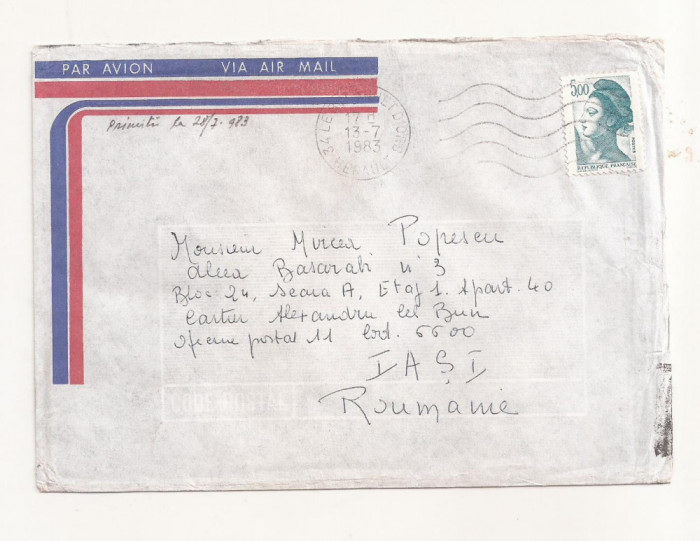 PAR AVION VIA AIR MAIL
Primită la 28/7-983
17 H
13-7
1983
HERAULT
5,00
REPUBLIQUE FRANÇAISE
Monsieur Mircea Popescu
Aleea Basarabi n° 3
Bloc 24, Scara A, Etaj 1. Apart. 40
Cartier Alexandru cel Bun
Oficiul postal 11 Cod. 6600
IAȘI
CODE POSTAL
Roumanie